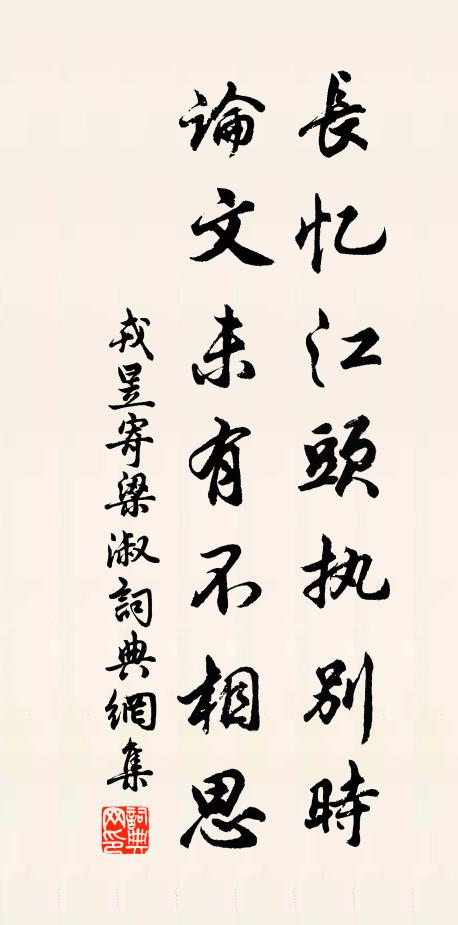 長忆江頭执别時
論文未有不相思
戎昱寄梁淑詞典網集
詞典网印